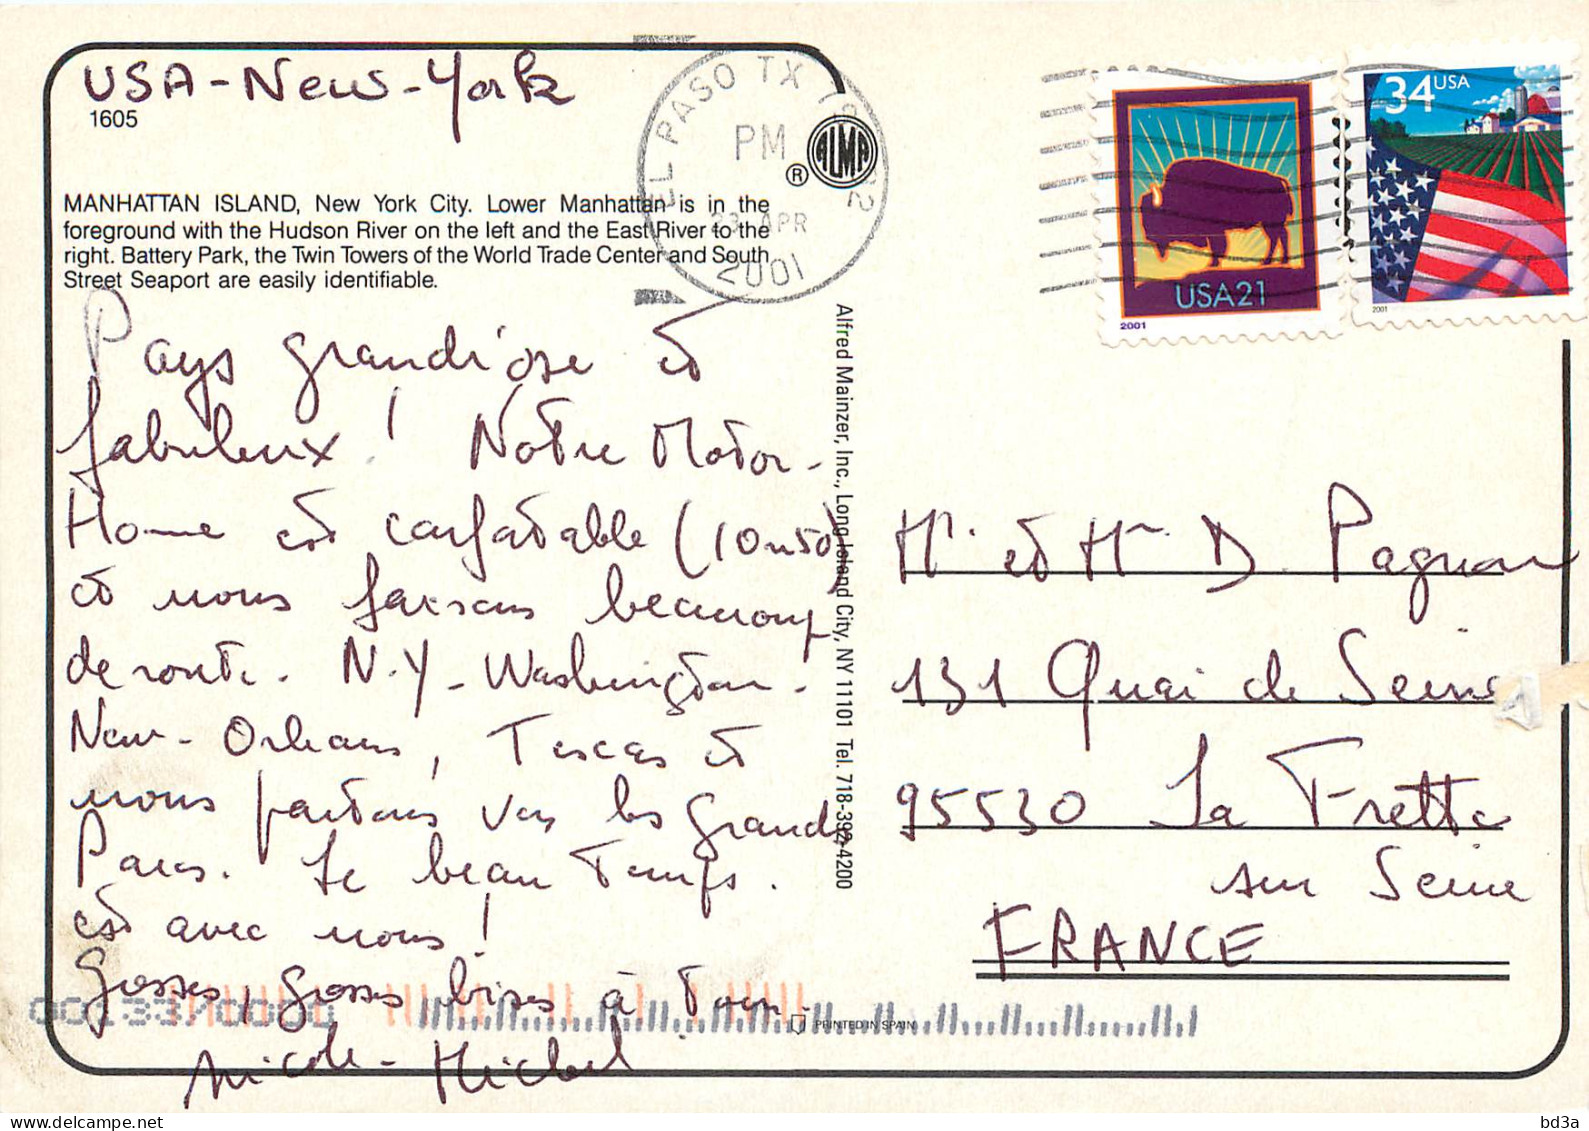 USA - New-York
1605
MANHATTAN ISLAND, New York City. Lower Manhattan is in the
foreground with the Hudson River on the left and the East River to the
right. Battery Park, the Twin Towers of the World Trade Center and South
Street Seaport are easily identifiable.
Pays grandiose et
fabuleux! Notre Motor-
Home est confortable (10m50)
et nous faisons beaucoup
de route. N.Y - Washington -
New-Orleans, Texas et
nous partons vers les Grands
Parcs. Le beau temps.
est avec nous!
Grosses, grosses bises à tous.
Nicole - Michel
EL PASO TX
PM
23 APR
2001
ALMA
®
Alfred Mainzer, Inc., Long Island City, NY 11101 Tel. 718-392-4200
USA21
2001
34 USA
2001
Mr. et Mme D Pagnon
131 Quai de Seine
95530 La Frette
sur Seine
FRANCE
PRINTED IN SPAIN
delcampe.net
bd3a